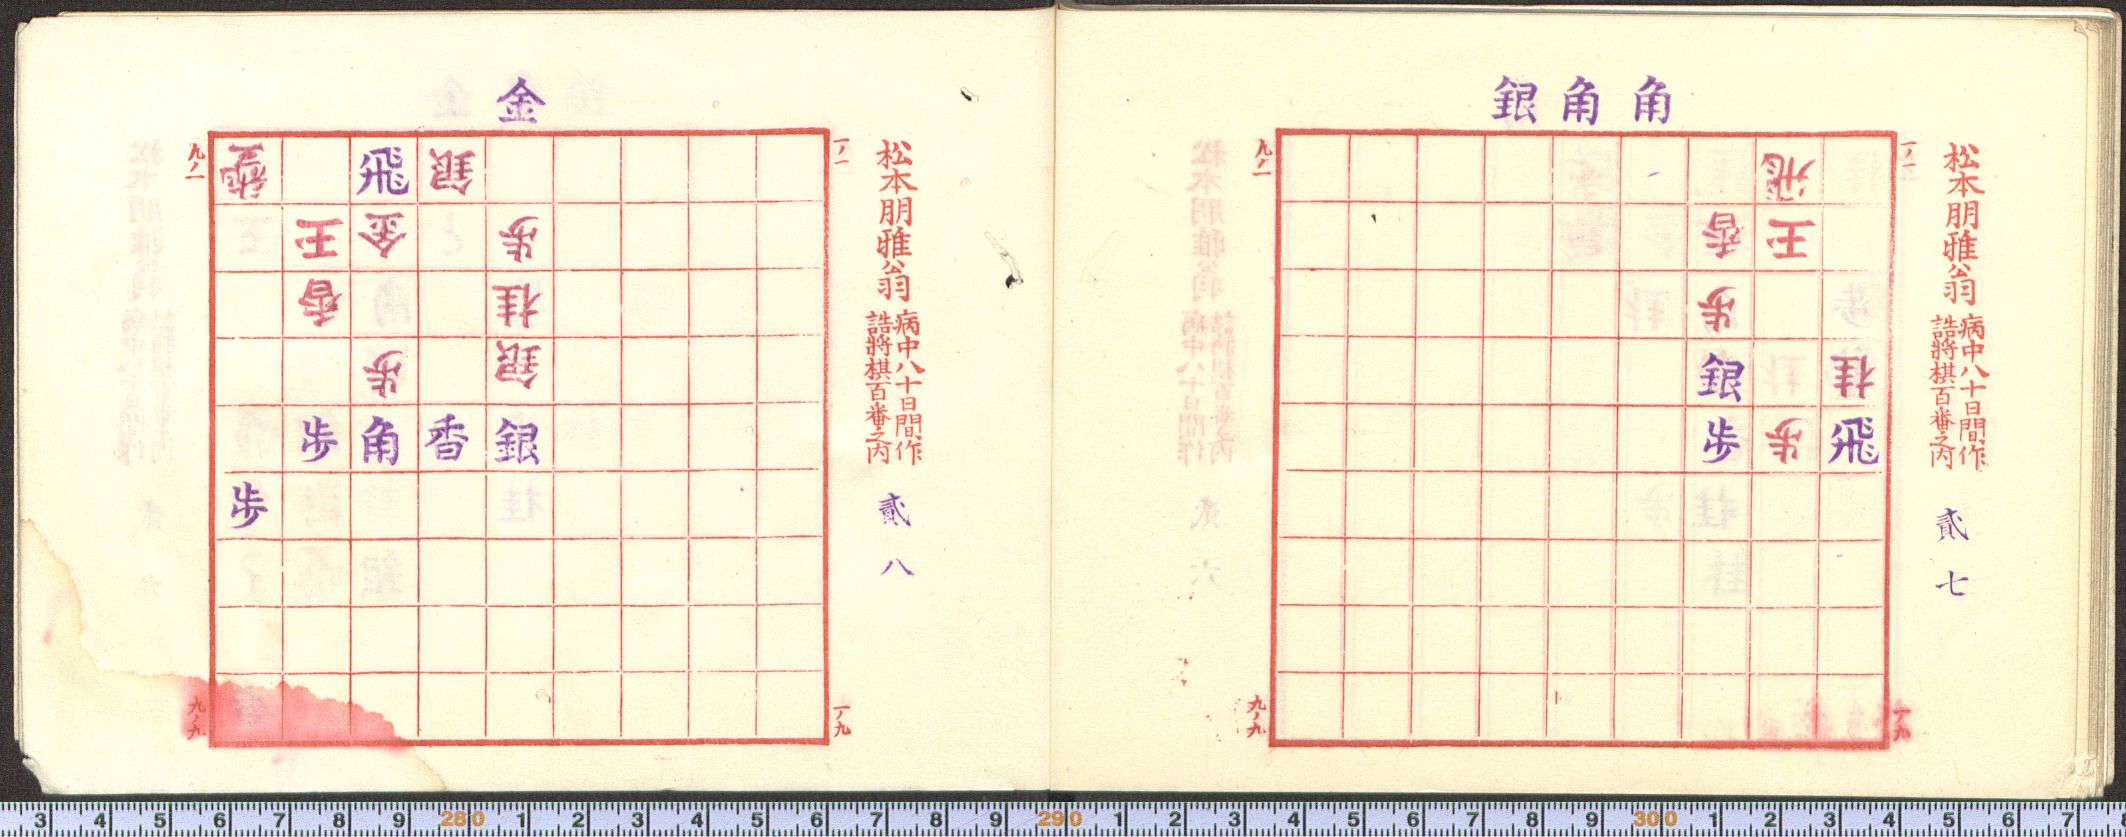 角角銀
松本朋雅翁 病中八十日間作
詰將棋百番之内
貳七
一ノ一
九ノ一
飛
香 王
歩
銀 桂
歩 歩 飛
九ノ九
一ノ九
金
松本朋雅翁 病中八十日間作
詰將棋百番之内
貳八
一ノ一
九ノ一
飛 銀
王 金 歩
香 桂
歩 銀
歩 角 香 銀
歩
九ノ九
一ノ九
3 4 5 6 7 8 9 280 1 2 3 4 5 6 7 8 9 290 1 2 3 4 5 6 7 8 9 300 1 2 3 4 5 6 7